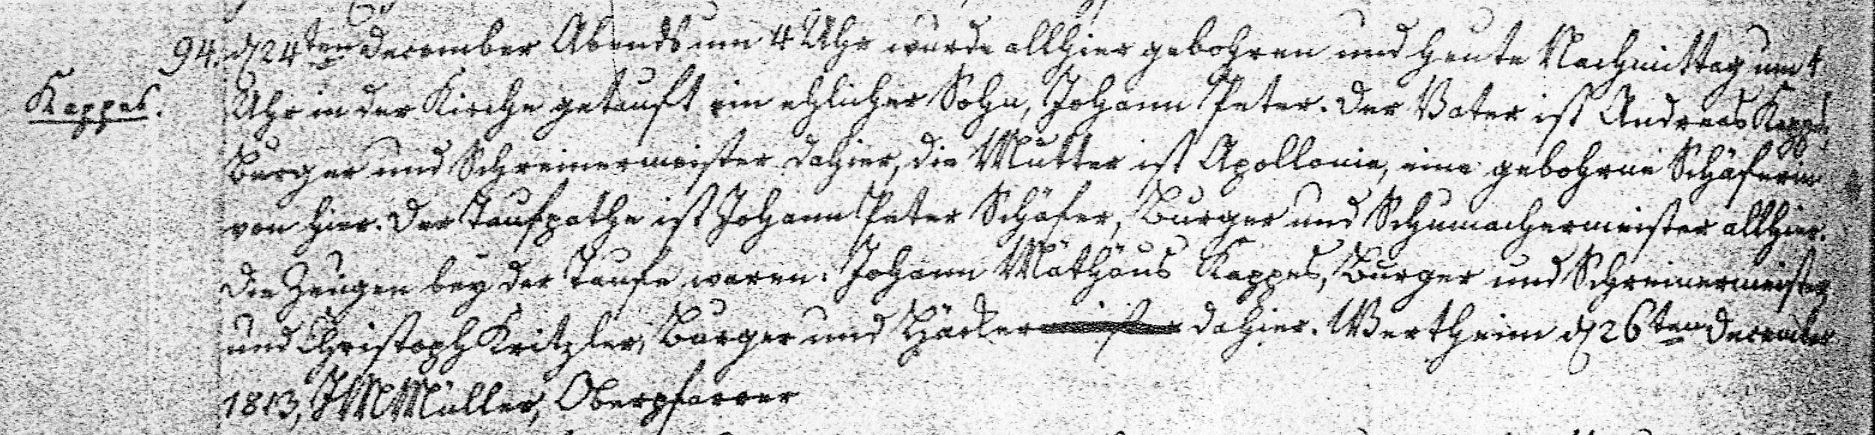 94. d 24ten December Abends um 4 Uhr wurde allhier gebohren und heute Nachmittag um 4
Kappes. Uhr in der Kirche getauft ein ehlicher Sohn, Johann Peter. Der Vater ist Andreas Kappes,
Burger und Schreinermeister dahier, die Mutter ist Apollonia, eine gebohrne Schäferin
von hier. Der Taufpathe ist Johann Peter Schäfer, Burger und Schumachermeister allhier.
Die Zeugen bey der Taufe waren: Johann Mathäus Kappes, Burger und Schreinermeister,
und Christoph Kritzler, Burger und Häcker dahier. Wertheim d 26ten December
1813, JMMüller, Oberpfarrer